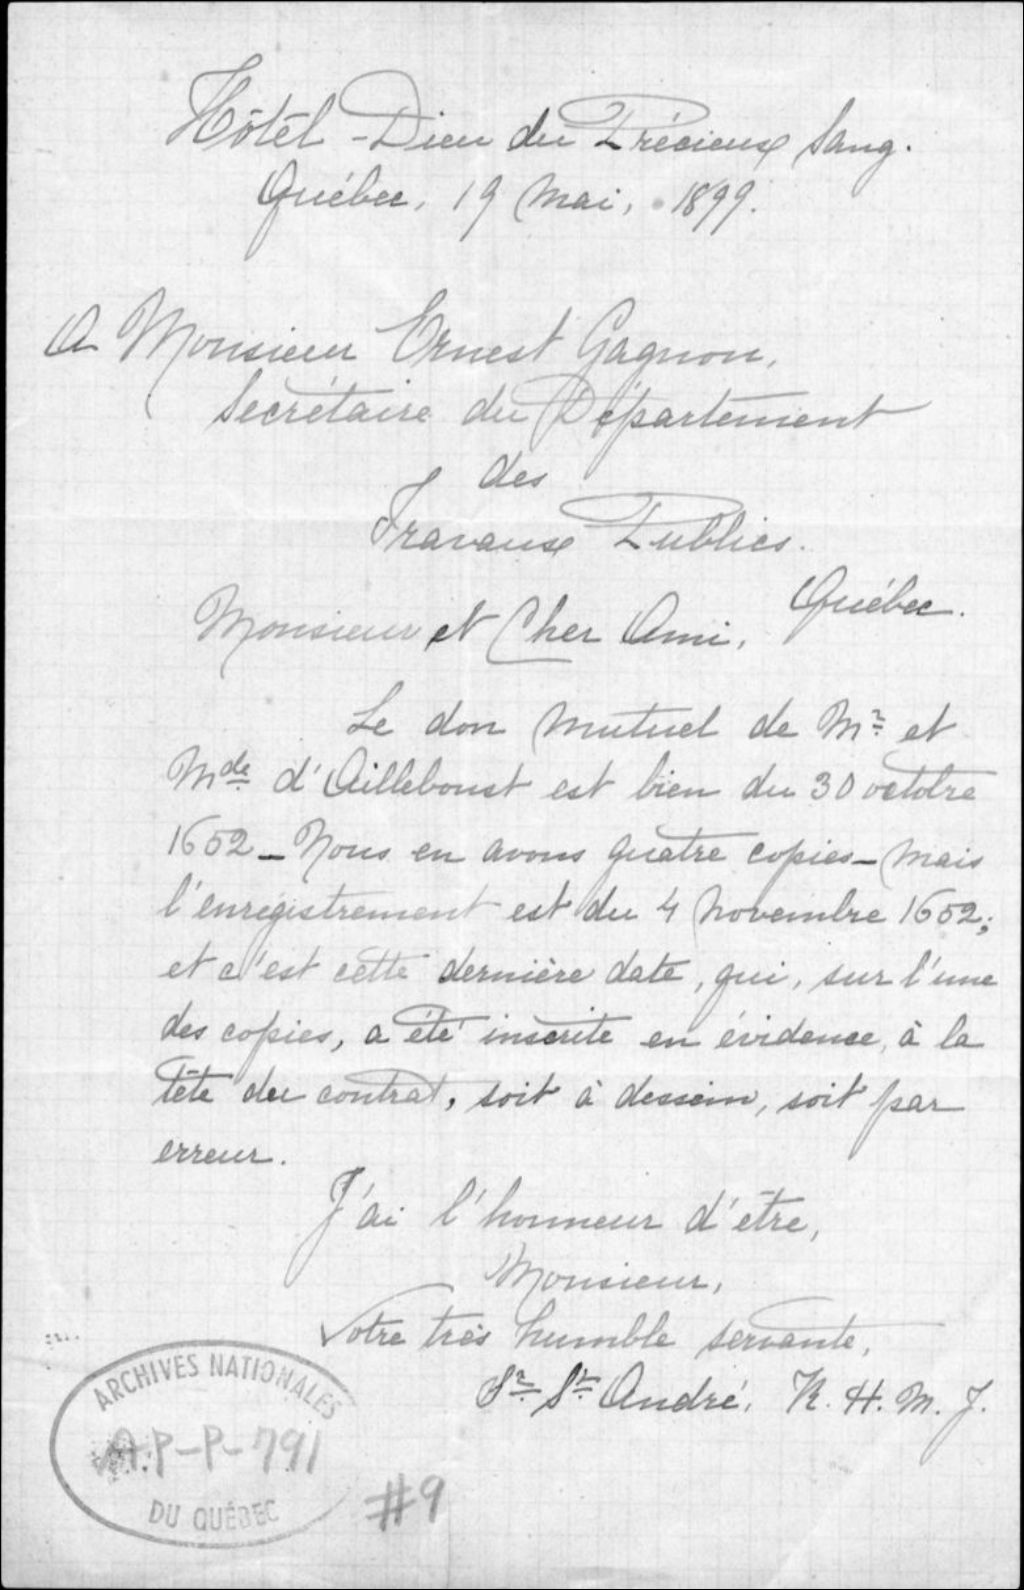 Hôtel-Dieu du Précieux Sang.
Québec, 19 Mai, 1899.
A Monsieur Ernest Gagnon,
Secrétaire du Département
des
Travaux Publics.
Québec.
Monsieur et Cher Ami,
Le don mutuel de Mr et
Mde d'Ailleboust est bien du 30 octobre
1652 - Nous en avons quatre copies - Mais
l'enregistrement est du 4 Novembre 1652;
et c'est cette dernière date, qui, sur l'une
des copies, a été inscrite en évidence, à la
tête du contrat, soit à dessein, soit par
erreur.
J'ai l'honneur d'être,
Monsieur,
Votre très humble servante,
Sr St André, R. H. M. J.
ARCHIVES NATIONALES
A.P-P-791
DU QUÉBEC
#9